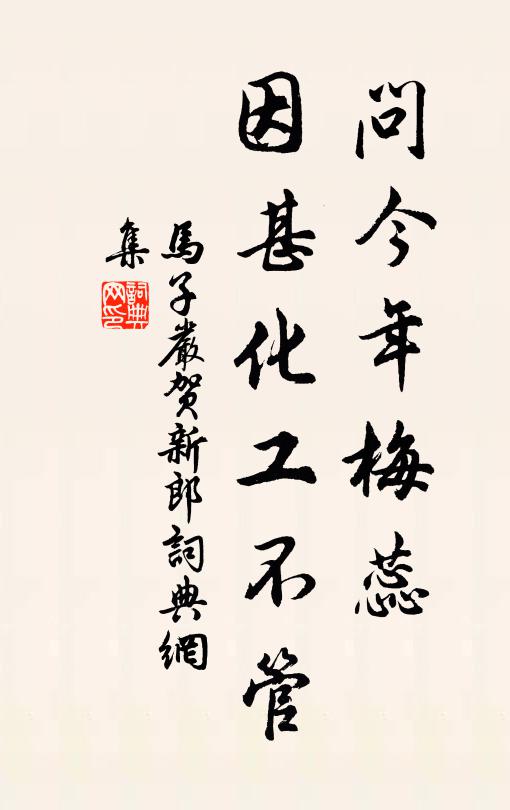 問今年梅蕊
因甚化工不管
馬子嚴賀新郎詞典網
集
詞典
网印